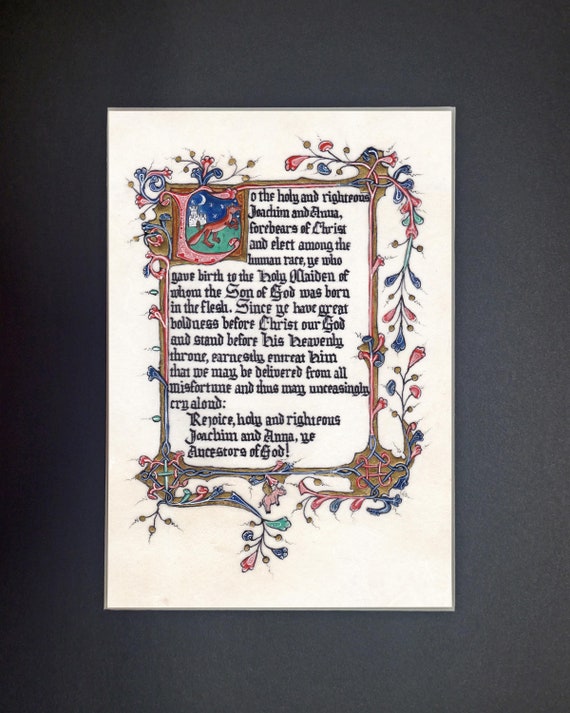 To the holy and righteous
Joachim and Anna,
forebears of Christ
and elect among the
human race, ye who
gave birth to the Holy Maiden of
whom the Son of God was born
in the flesh. Since ye have great
boldness before Christ our God
and stand before His Heavenly
throne, earnestly entreat Him
that we may be delivered from all
misfortune and thus may unceasingly
cry aloud:
Rejoice, holy and righteous
Joachim and Anna, ye
Ancestors of God!